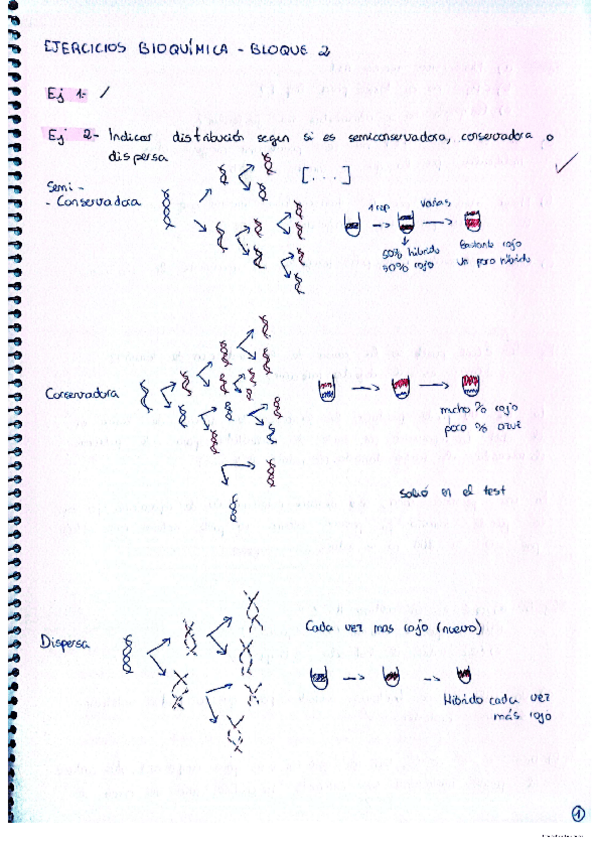 EJERCICIOS BIOQUÍMICA - BLOQUE 2
Ej 1- /
Ej 2- Indicar distribución según si es semiconservadora, conservadora o
dispersa
Semi -
- Conservadora
[...]
1 rep
varias
50% híbrido
50% rojo
Bastante rojo
un poco híbrido
Conservadora
mucho % rojo
poco % azul
salió en el test
Dispersa
Cada vez mas rojo (nuevo)
Híbrido cada vez
más rojo
1